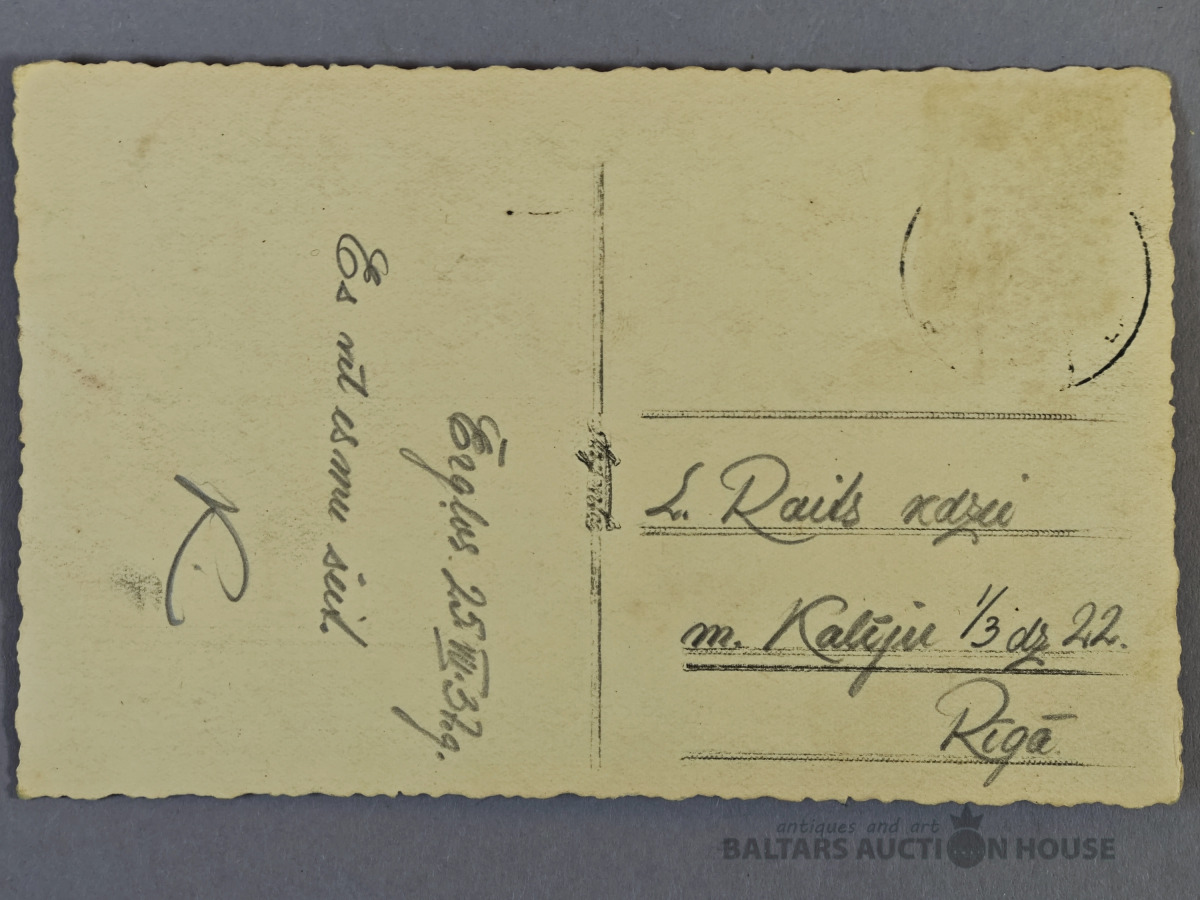 Es vēl esmu šeit.
K.
Ērgļos. 25 VII. 37g.
L. Raits kdzei
m. Kalēju 1/3 dz 22.
Rīgā
antiques and art
BALTARS AUCTION HOUSE